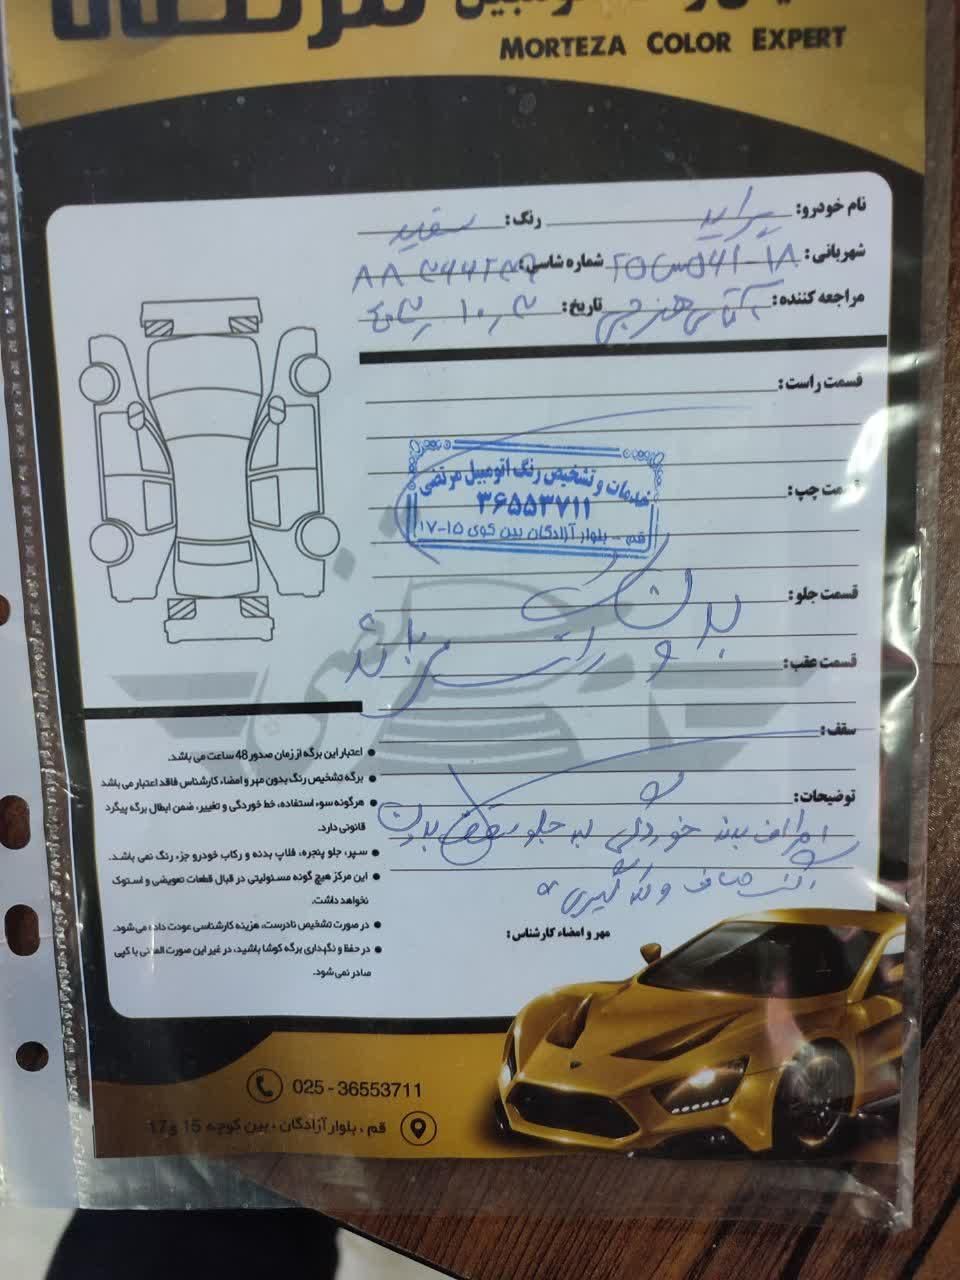 MORTEZA COLOR EXPERT
نام خودرو: پراید رنگ: سفید
شهربانی: شماره شاسی:
مراجعه کننده: آقای هنرجی تاریخ:
قسمت راست:
خدمات و تشخیص رنگ اتومبیل مرتضی
۳۶۵۵۳۷۱۱
قم - بلوار آزادگان بین کوی ۱۵-۱۷
قسمت چپ:
قسمت جلو:
بدون رنگ
و می باشد
قسمت عقب:
سقف:
توضیحات:
خوردگی جلو سقف بدون رنگ
صاف و لکه گیری
مهر و امضاء کارشناس:
اعتبار این برگه از زمان صدور 48 ساعت می باشد.
برگه تشخیص رنگ بدون مهر و امضاء کارشناس فاقد اعتبار می باشد
هرگونه سوء استفاده، خط خوردگی و تغییر، ضمن ابطال برگه پیگرد
قانونی دارد.
سپر، جلو پنجره، فلاپ بدنه و رکاب خودرو جزء رنگ نمی باشد.
این مرکز هیچ گونه مسئولیتی در قبال قطعات تعویضی و استوک
نخواهد داشت.
در صورت تشخیص نادرست، هزینه کارشناسی عودت داده می شود.
در حفظ و نگهداری برگه کوشا باشید، در غیر این صورت المثنی یا کپی
صادر نمی شود.
025 - 36553711
قم ، بلوار آزادگان ، بین کوچه 15 و 17